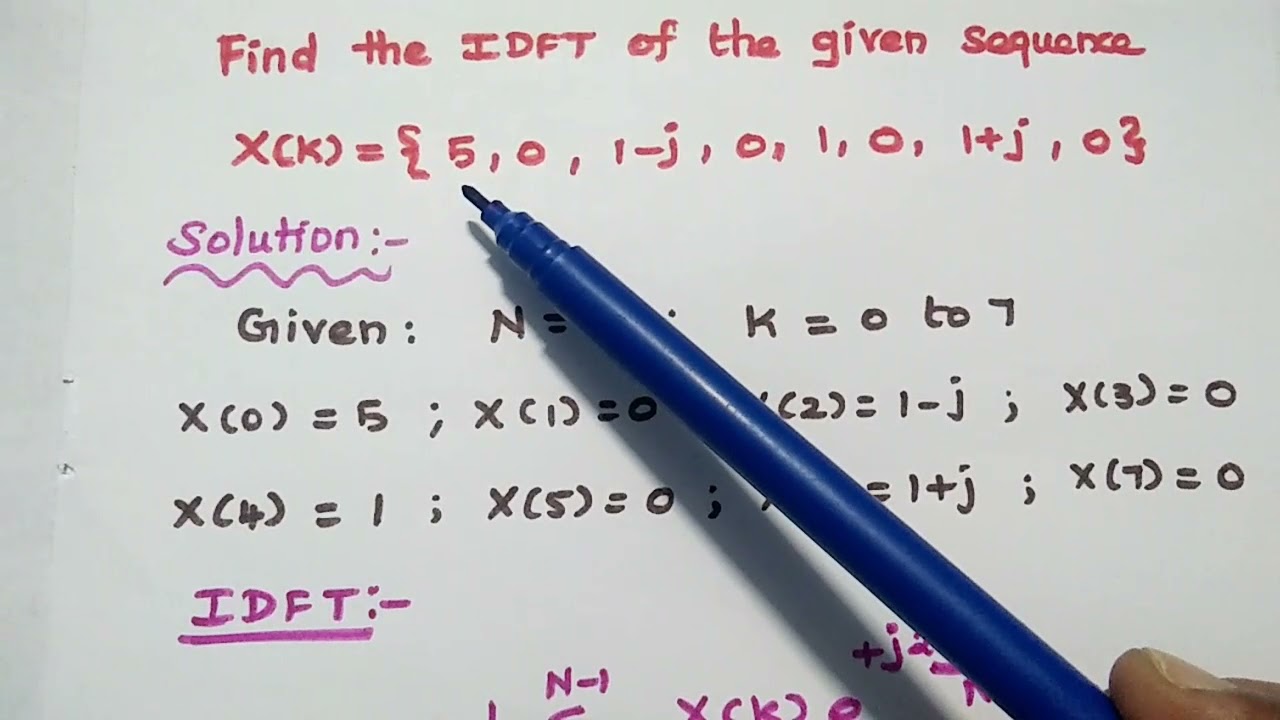 Find the IDFT of the given sequence
X(K) = { 5, 0, 1-j, 0, 1, 0, 1+j, 0}
Solution:-
Given: N = ; K = 0 to 7
X(0) = 5 ; X(1) = 0 (2) = 1-j ; X(3) = 0
X(4) = 1 ; X(5) = 0 ; = 1+j ; X(7) = 0
IDFT:-
N-1 +j2
X(K) e